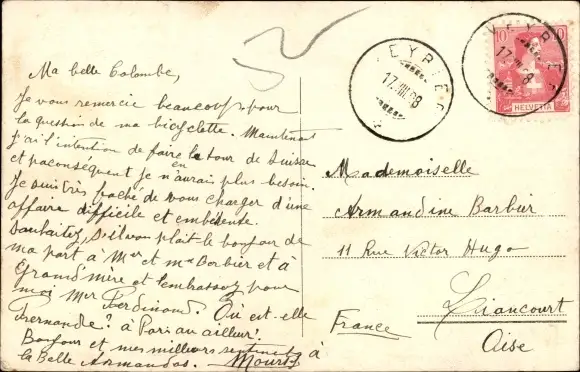 Ma belle Colombe,
Je vous remercie beaucoup pour
la question de ma bicyclette. Maintenant
j'ai l'intention de faire le tour de Suisse
et paconséquent je n'en aurais plus besoin.
Je suis très faché de vous charger d'une
affaire difficile et
Souhaitez, s'il vous plait le bonjour de
ma part à Mer et Me Barbier et à
Grand'mère et embrassez pour
moi Mer Ferdinand. Où est-elle
Fernande? à Pari au ailleur?
Bonjour et mes meilleurs à
la Belle Armandos.
VEYRIER
17.VIII.08
VEYRIER
17.VIII.08
10
HELVETIA
Mademoiselle
Armandine Barbier
11 Rue Victor Hugo
Liancourt
France
Oise